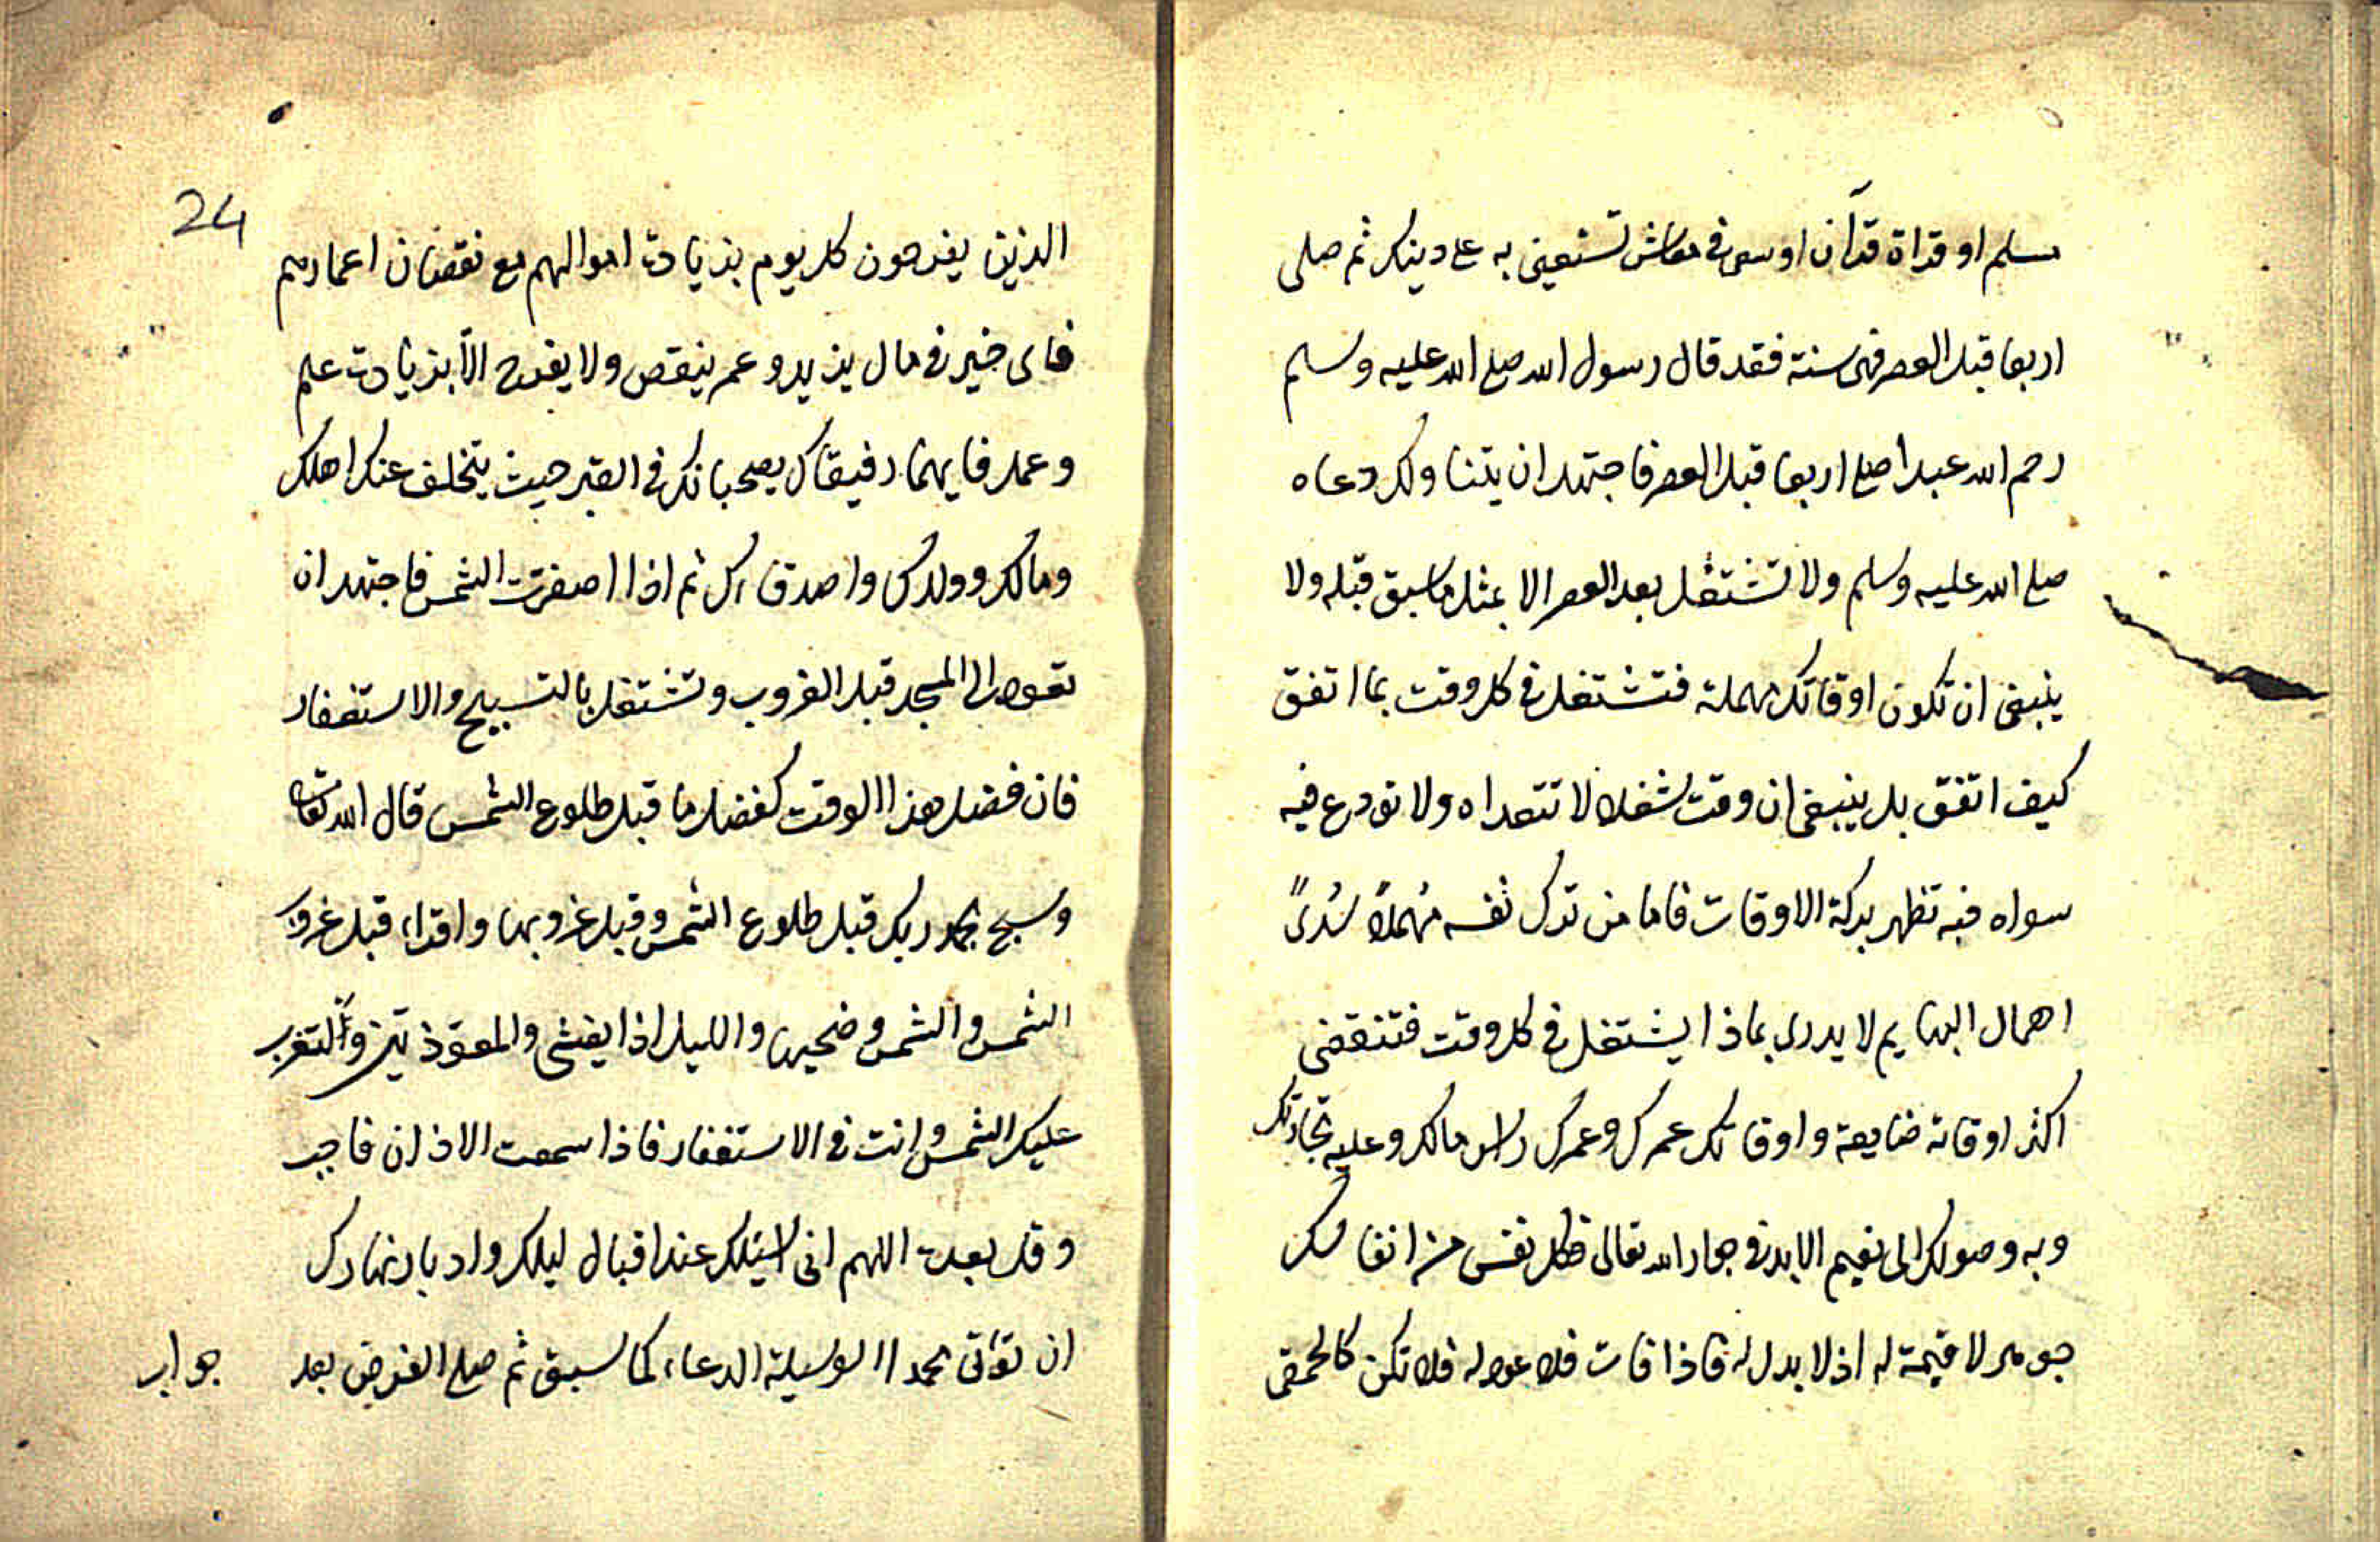 مسلم او قراة قرآن او سعى فى معاش تستعين به على دينك ثم صلى
اربعا قبل العصر فهى سنة فقد قال رسول الله صلى الله عليه وسلم
رحم الله عبدا صلى اربعا قبل العصر فاجتهد ان يتناولك دعاه
صلى الله عليه وسلم ولا تشتغل بعد العصر الا بمثل ما سبق قبله ولا
ينبغى ان تكون اوقاتك مهملة فتشتغل فى كل وقت بما اتفق
كيف اتفق بل ينبغى ان وقت شغلا لا تتعداه ولا تودع فيه
سواه فبه تظهر بركة الاوقات فاما من ترك نفسه مُهملاً سُدىً
اهمال البهايم لا يدرى بماذا يشتغل فى كل وقت فتنقضى
اكثر اوقاته ضايعة واوقاتك عمرك وعمرك راس مالك وعليه تجارتك
وبه وصولك الى نعيم الابد فى جوار الله تعالى فكل نفس من انفاسك
جوهر لا قيمة له اذ لا بدل له فاذا فات فلا عود له فلا تكن كالحمقى
24
الذين يفرحون كل يوم بزيادت اموالهم مع نقصان اعمارهم
فاى خير فى مال يزيد وعمر ينقص ولا يفرح الّا بزيادت علم
وعمل فايهما رفيقاك يصحبانك فى القبر حيث يتخلف عنك اهلك
ومالك وولدك واصدقاءك ثم اذا اصفرت الشمس فاجتهد ان
تعود الى المسجد قبل الغروب وتشتغل بالتسبيح والاستغفار
فان فضل هذا الوقت كفضل ما قبل طلوع الشمس قال الله تعالى
وسبح بحمد ربك قبل طلوع الشمس وقبل غروبها واقراء قبل غروب
الشمس والشمس وضحيها والليل اذا يغشى والمعوّذتين ولتغرب
عليك الشمس وانت فى الاستغفار فاذا سمعت الاذان فاجب
وقل بعده اللهم انى اسئلك عند اقبال ليلك وادبار نهارك
ان تؤتى محمدا الوسيلة الدعاء كما سبق ثم صلى الفرض بعد
جواب